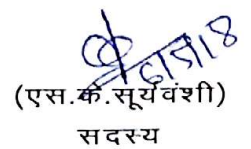 (एस.के.सूर्यवंशी)
सदस्य